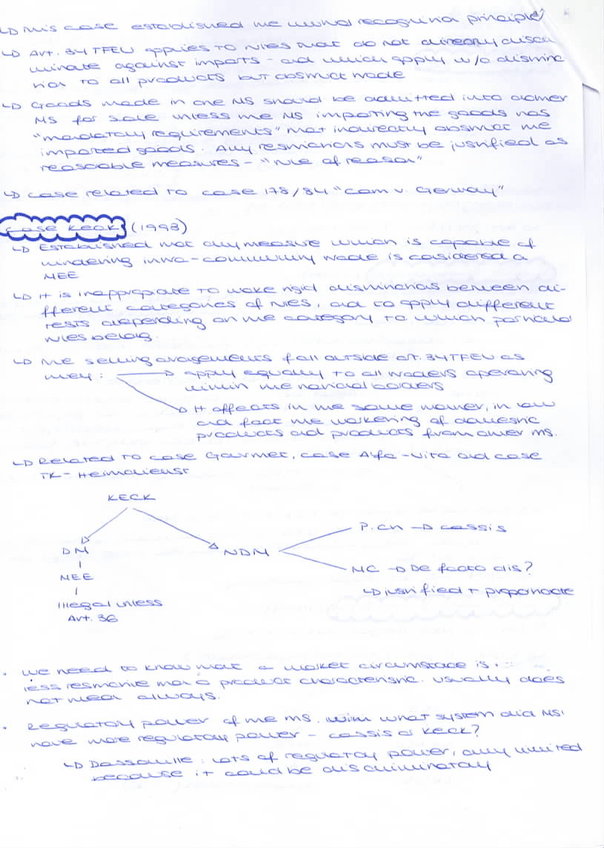 ↳ This case established the mutual recognition principle
↳ Art. 34 TFEU applies to NTEs that do not directly discri
minate against imports - and which apply w/o distinc
tion to all products but obstruct trade
↳ Goods made in one MS should be admitted into another
MS for sale unless the MS importing the goods has
"mandatory requirements" that indirectly obstruct the
imported goods. Any restrictions must be justified as
reasonable measures - "rule of reason"
↳ Case related to case 178/84 "Com v. Germany"
Case Keck (1993)
↳ Established that any measure which is capable of
hindering intra-community trade is considered a
MEE
↳ It is inappropiate to make rigid distinctions between di-
fferent categories of NTEs, and to apply different
tests depending on the category to which particular
NTEs belong.
↳ The selling arrangements fall outside art. 34 TFEU as
they: → apply equally to all traders operating
within the national borders
→ It affects in the same manner, in law
and fact the marketing of domestic
products and products from other MS.
↳ Related to case Gourmet, case Alfa-Vita and case
TK-Heimdienst
KECK
DM
NDM
P. Ch → Cassis
MEE
MC → De facto dis?
↳ justified + proportionate
Illegal unless
Art. 36
· We need to know that a market circumstance is
less restrictive than a product characteristic. Usually does
not mean always.
· Regulatory power of the MS. With what system did MS
have more regulatory power - Cassis or Keck?
↳ Dassonville: lots of regulatory power, only limited
because it could be discriminatory